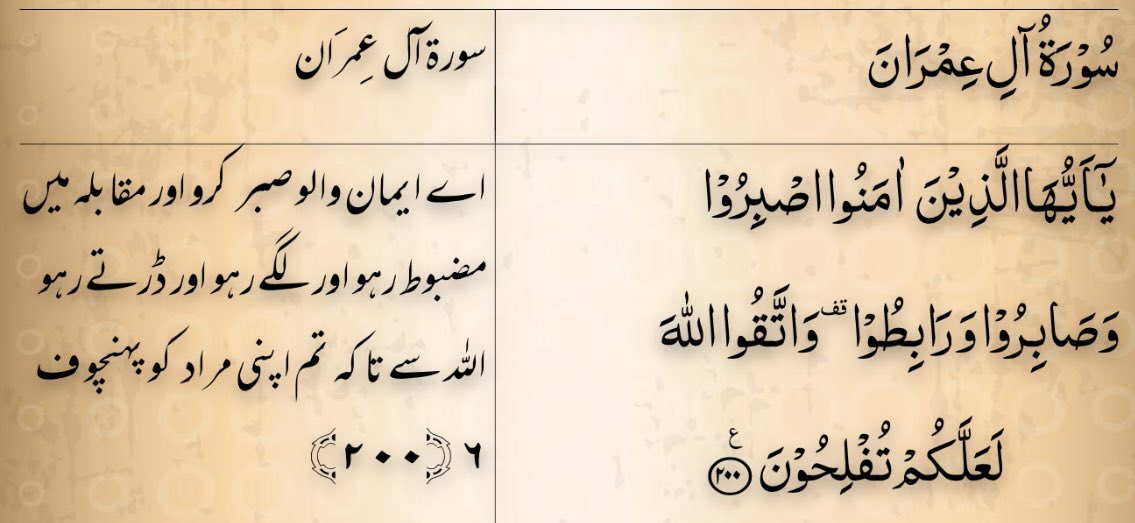 سُوْرَةُ آلِ عِمْرَانَ
سورة آل عِمرَان
يٰٓاَيُّهَا الَّذِيْنَ اٰمَنُوا اصْبِرُوْا
وَصَابِرُوْا وَرَابِطُوْا قف وَاتَّقُوا اللّٰهَ
لَعَلَّكُمْ تُفْلِحُوْنَ ع ﴿۲۰۰﴾
اے ایمان والو صبر کرو اور مقابلہ میں
مضبوط رہو اور لگے رہو اور ڈرتے رہو
اللہ سے تاکہ تم اپنی مراد کو پہنچو ف
۶ ﴿۲۰۰﴾